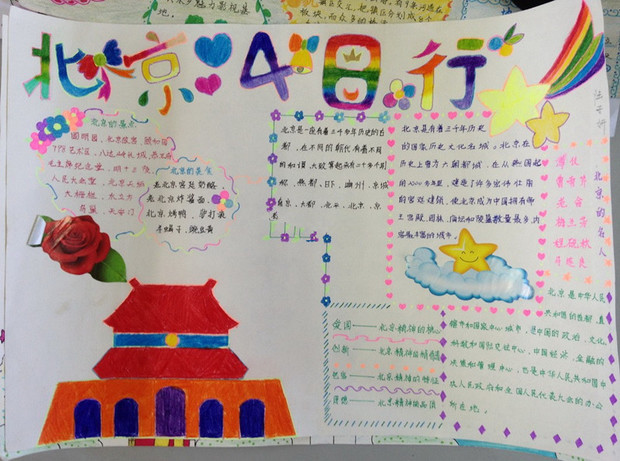 北京4日行
北京的景点
圆明园、北京故宫、颐和园
798艺术区、八达岭长城、恭王府
毛主席纪念堂、明十三陵
人民大会堂、北京天坛
大栅栏、
鸟巢、天安门
北京的美食
老北京宫廷奶酪
老北京炸酱面、
北京烤鸭、驴打滚
豌豆黄
北京是一座有着三千余年历史的古
都，在不同的朝代有着不同
的称谓，大致算起来有二十多个别
称，燕都、幽州、京城
南京、大都、北平、北京、
北京是有着三千年历史
的国家历史文化名城，北京在
历史上曾为六朝都城，在从燕国起
的2000多年里，建造了许多宏伟壮丽
的宫廷建筑，使北京成为中国拥有帝
王宫殿、园林、庙坛和陵墓数量最多，内
容最丰富的城市。
北京的名人
溥仪
鲁有芹
老舍
梅兰芳
纪晓岚
北京是中华人民
共和国的首都、直
辖市和国家中心城市，是中国的政治、文化
科教和国际交往中心，中国经济、金融的
决策和管理中心，也是中华人民共和国中
央人民政府和全国人民代表大会的办公
所在地。
爱国——北京精神的核心
创新——北京精神的精髓
包容——北京精神的特征
厚德——北京精神的品质